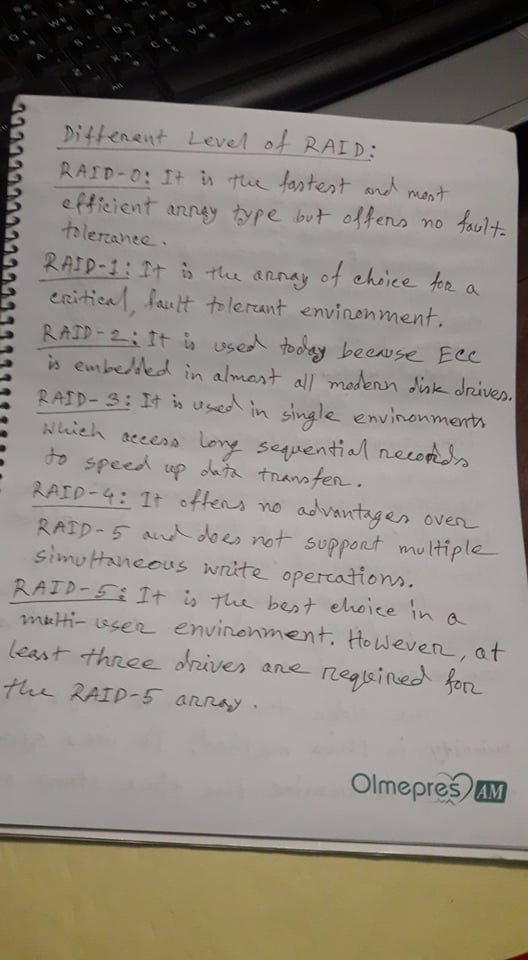 Different Level of RAID:
RAID-0: It is the fastest and most
efficient array type but offers no fault-
tolerance.
RAID-1: It is the array of choice for a
critical, fault tolerant environment.
RAID-2: It is used today because ECC
is embedded in almost all modern disk drives.
RAID-3: It is used in single environments
which access long sequential records
to speed up data transfer.
RAID-4: It offers no advantages over
RAID-5 and does not support multiple
simultaneous write operations.
RAID-5: It is the best choice in a
multi-user environment. However, at
least three drives are required for
the RAID-5 array.
Olmepres AM